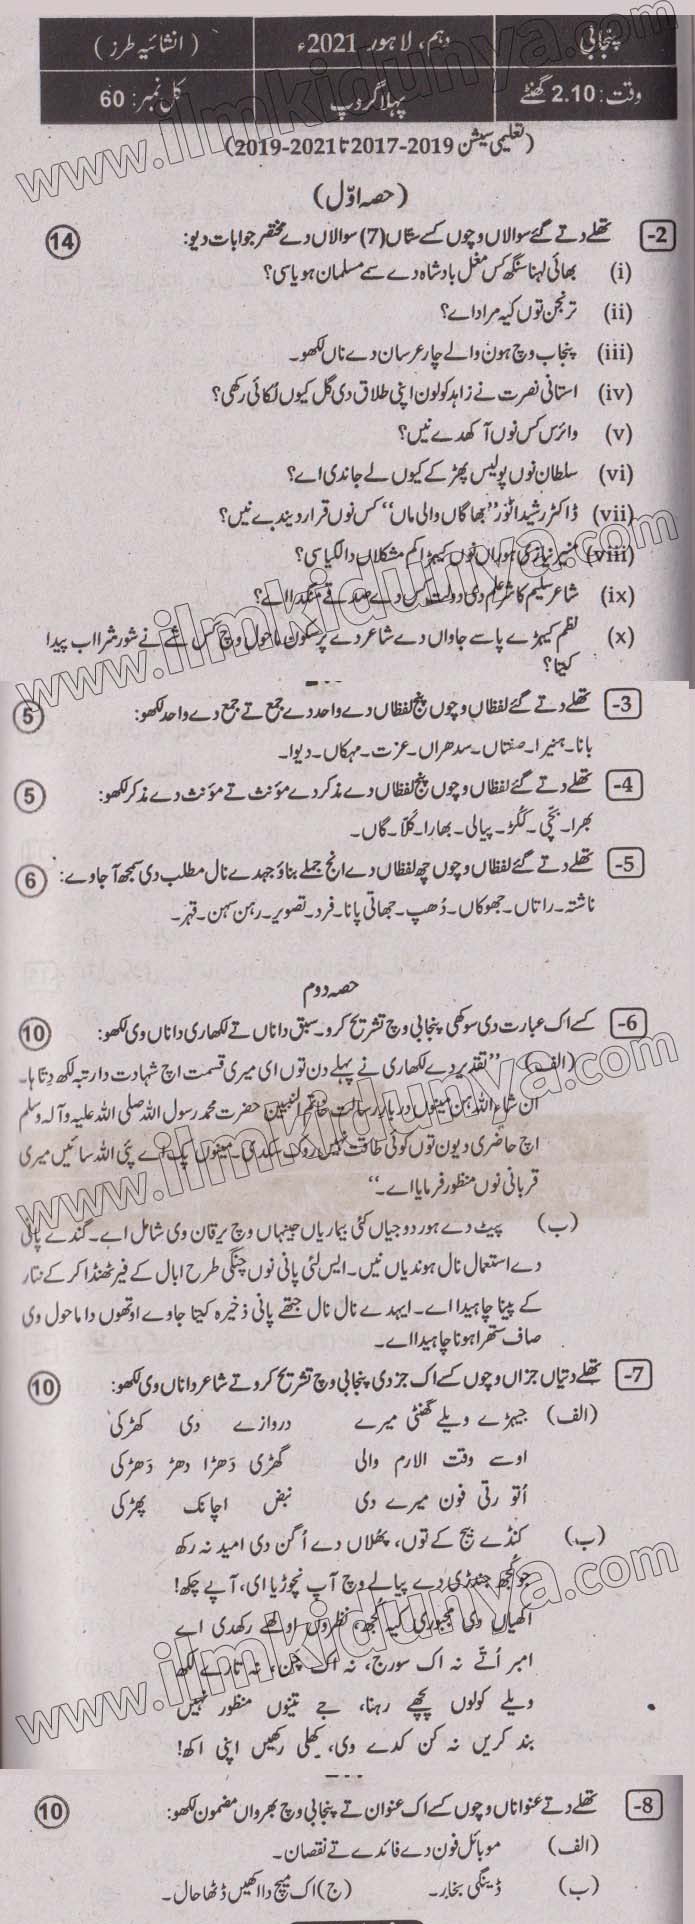 پنجابی دہم، لاہور 2021ء (انشائیہ طرز)
وقت: 2.10 گھنٹے پہلا گروپ کل نمبر: 60
(تعلیمی سیشن 2019-2017 تا 2021-2019)
(حصہ اوّل)
-2 تھلے دتے گئے سوالاں وچوں کسے ستاں (7) سوالاں دے مختصر جوابات دیو: 14
(i) بھائی لہنا سنگھ کس مغل بادشاہ دے سمے مسلمان ہویا سی؟
(ii) ترنجن توں کیہ مراد اے؟
(iii) پنجاب وچ ہون والے چار عرسان دے ناں لکھو۔
(iv) استانی نصرت نے زاہد کولوں اپنی طلاق دی گل کیوں لُکائی رکھی؟
(v) وائرس کس نوں آکھدے نیں؟
(vi) سلطان نوں پولیس پھڑ کے کیوں لے جاندی اے؟
(vii) ڈاکٹر رشید انور ”بھاگاں والی ماں“ کس نوں قرار دیندے نیں؟
(viii) منیر نیازی ہوراں نوں کیہڑا کم مشکلاں دا لگیا سی؟
(ix) شاعر سلیم کاشر علم دی دولت کس دے صدقے منگدا اے؟
(x) نظم کیہڑے پاسے جاواں دے شاعر دے پُرسکون ماحول وچ کس شے نے شور شرابا پیدا
کیتا؟
-3 تھلے دتے گئے لفظاں وچوں پنج لفظاں دے واحد دے جمع تے جمع دے واحد لکھو: 5
بانا۔ ہنیرا۔ صفتاں۔ سدھراں۔ عزت۔ مہکاں۔ دیوا۔
-4 تھلے دتے گئے لفظاں وچوں پنج لفظاں دے مذکر دے مؤنث تے مؤنث دے مذکر لکھو: 5
بھرا۔ بچّی۔ ککڑ۔ پیالی۔ بھارا۔ کُتّا۔ گاں۔
-5 تھلے دتے گئے لفظاں وچوں چھ لفظاں دے انج جملے بناؤ جہدے نال مطلب دی سمجھ آ جاوے: 6
ناشتہ۔ راتاں۔ جھوکاں۔ دُھپ۔ جھاتی پانا۔ فرد۔ تصویر۔ رہن سہن۔ قہر۔
حصہ دوم
-6 کسے اک عبارت دی سوکھی پنجابی وچ تشریح کرو۔ سبق دا ناں تے لکھاری دا ناں وی لکھو: 10
(الف) ”تقدیر دے لکھاری نے پہلے دن توں ای میری قسمت اچ شہادت دا رتبہ لکھ دتا ہا۔
ان شاء اللہ ہن مینوں دربار رسالت خاتم النبیین حضرت محمد رسول اللہ صلی اللہ علیہ وآلہ وسلم
اچ حاضری دیون توں کوئی طاقت نہیں روک سکدی۔ مینوں پک اے پئی اللہ سائیں میری
قربانی نوں منظور فرمایا اے۔“
(ب) پیٹ دے ہور دوجیاں کئی بیماریاں جیہناں وچ یرقان وی شامل اے۔ گندے پانی
دے استعمال نال ہوندیاں نیں۔ ایس لئی پانی نوں چنگی طرح ابال کے فیر ٹھنڈا کر کے نتار
کے پینا چاہیدا اے۔ ایہدے نال نال جتھے پانی ذخیرہ کیتا جاوے اوتھوں دا ماحول وی
صاف ستھرا ہونا چاہیدا اے۔
-7 تھلے دتیاں جزاں وچوں کسے اک جز دی پنجابی وچ تشریح کرو تے شاعر دا ناں وی لکھو: 10
(الف) جیہڑے ویلے گھنٹی میرے دروازے دی کھڑکی
اوسے وقت الارم والی گھڑی دَھڑا دھڑ دَھڑکی
اُتو رتی فون میرے دی نبض اچانک پھڑکی
(ب) کنڈے بیج کے توں، پھلاں دے اُگن دی امید نہ رکھ
جو کجھ جندڑی دے پیالے وچ آپ نچوڑیا ای، آپے چکھ!
اکھیاں دی مجبوری کیہ کجھ، نظروں اوہلے رکھدی اے
امبر اُتے نہ اک سورج، نہ اک چَن، نہ تارے لکھ
ویلے کولوں پچھے رہنا، جے تینوں منظور نہیں
بند کریں نہ کن کدے وی، کھلی رکھیں اپنی اکھ!
-8 تھلے دتے عنواناں وچوں کسے اک عنوان تے پنجابی وچ بھرواں مضمون لکھو: 10
(الف) موبائل فون دے فائدے تے نقصان۔
(ب) ڈینگی بخار۔ (ج) اک میچ دا اکھیں ڈٹھا حال۔
www.ilmkidunya.com
www.ilmkidunya.com
www.ilmkidunya.com
www.ilmkidunya.com